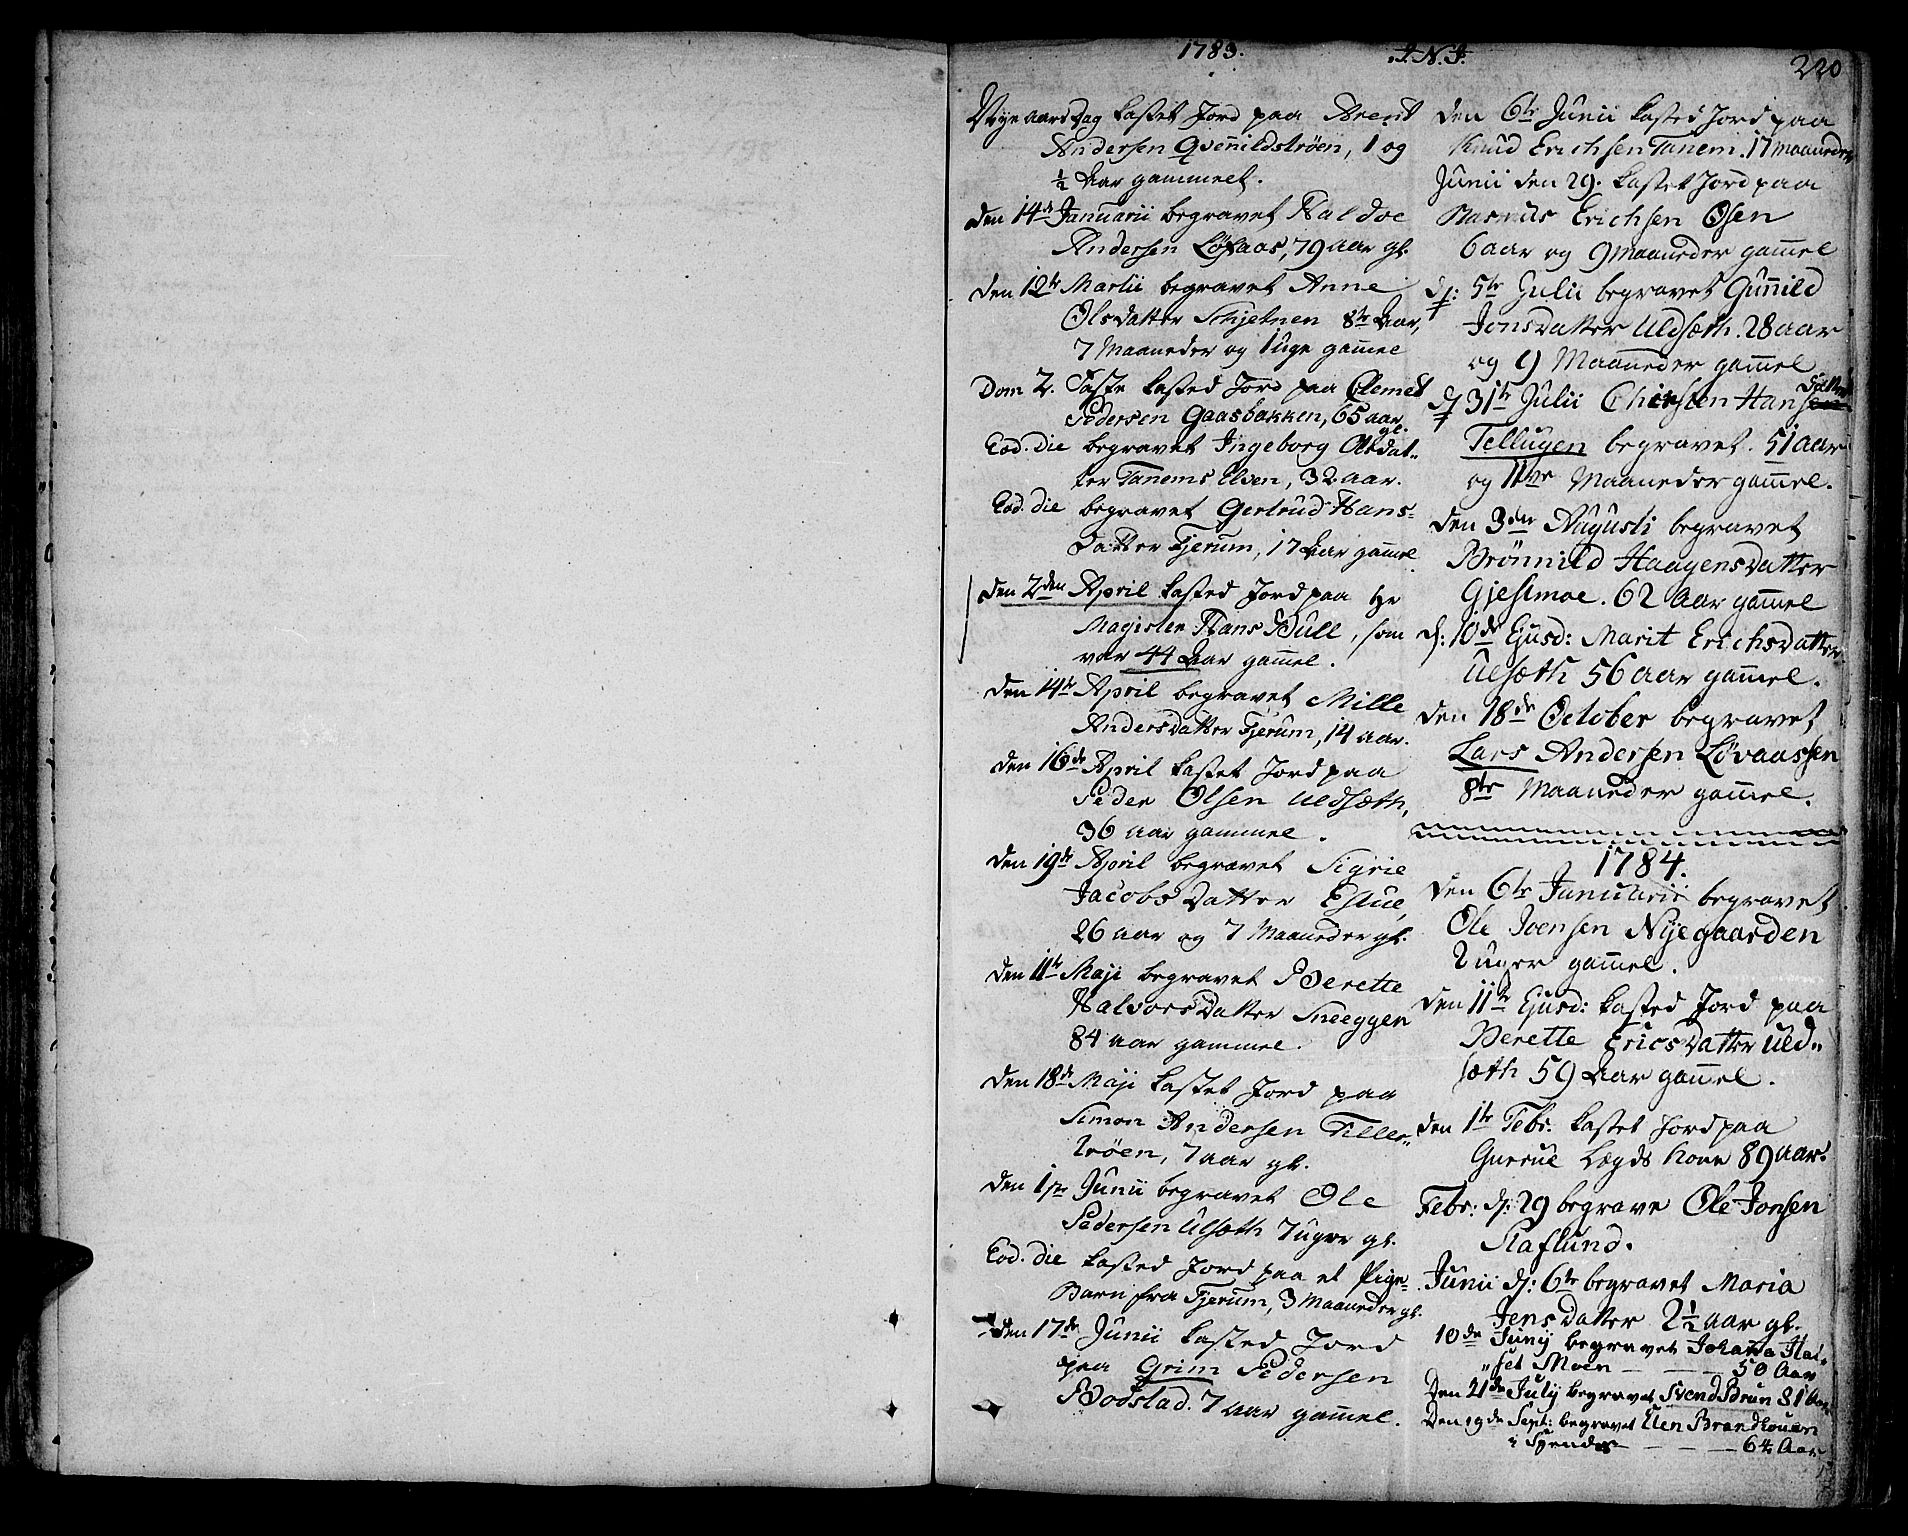 1783. I.N.J. 220
Nye aars Dag kastet Jord paa Arent
Andersen Qvenildstrøen, 1 og
1/2 Aar gammel.
den 14de Januarii begravet Haldoe
Andersen Løfaas, 79 aar gl.
den 12te Martii begravet Anne
Olsdatter Schjetnen 8te Aar,
7 Maaneder og 1 uge gam̄el
Dom 2. Faste kasted Jord paa Clemet
Pedersen Gaasbakken, 65 aar
gl.
Eod. die begravet Ingeborg Olsdat-
ter Tanems Elven, 32 aar.
Eod. die begravet Gertrud Hans-
datter Tjerum, 17 Aar gam̄el.
den 2den April kasted Jord paa Hr
Magister Hans Bull, som
var 44 Aar gam̄el.
den 14de April begravet Mille
Andersdatter Tjerum, 14 aar.
den 16de April kastet Jord paa
Peder Olsen Uldsæth,
36 aar gammel.
den 19de April begravet Sigrie
Jacobsdatter Estue,
26 aar og 7 Maaneder gl.
den 11te Maji begravet Berette
Halvorsdatter Sneeggen
84 aar gammel.
den 18de Maji kastet Jord paa
Simon Andersen Tiller-
trøen, 7 aar gl.
den 1ste Junii begravet Ole
Pedersen Ulsæth 7 uger gl.
Eod. die kasted Jord paa et Pige-
Barn fra Tjerum, 3 Maaneder gl.
den 17de Junii kasted Jord
paa Grim Pedersen
Bodstad. 7 aar gam̄el.
den 6te Junii kasted Jord paa
Knud Erichsen Tanem. 17 Maaneder
Junii den 29. kastet Jord paa
Rasmus Erichsen Osen
6 aar og 9 Maaneder gam̄el
d: 5te Julii begravet Gun̄ild
Jonsdatter Uldsæth. 28 aar
og 9 Maaneder gam̄el
d 31te Julii Chirsten Hansen
datter
Tellugen begravet. 51 aar
og 11ve Maaneder gam̄el.
den 3die Augusti begravet
Brønnild Haagensdatter
Gjestmoe. 62 Aar gam̄el
d: 10de Ejusd: Marit Erichsdatter
Ulsæth 56 aar gam̄el.
den 18de October begravet
Lars Andersen Løvaassen
8te Maaneder gam̄el.
1784.
den 6te Januarii begravet
Ole Joensen Nyegaarden
2 uger gam̄el.
den 11te Ejusd: kasted Jord paa
Berette Ericsdatter Uld-
sæth 59 Aar gam̄el.
den 1te Febr: kastet Jord paa
Gurrue Lægds kone 89 aar.
Febr: d: 29 begrave Ole Jonsen
Staflund.
Junii d: 6te begravet Maria
Jensdatter 2 1/2 aar gl.
10de Junij begravet Johana Hal-
set Moen — — 50 Aar
Den 21de July begravet Svend Brun 81 Aar
Den 19de Sept: begravet Elen Brandhouen
— — — 64 Aar